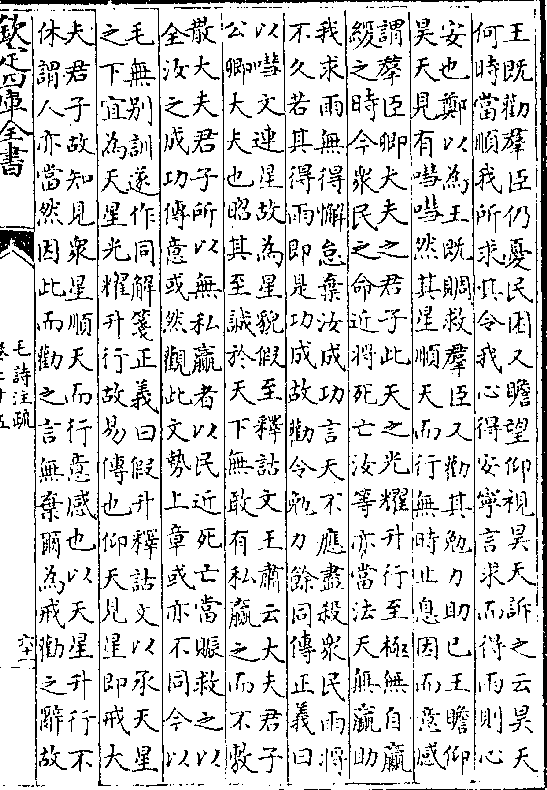 王既勸羣臣仍憂民困又瞻望仰視昊天訴之云昊天
何時當順我所求其令我心得安寧言求而得雨則心
安也鄭以為王既賙救羣臣又勸其勉力助已王瞻仰
昊天見有嘒嘒然其星順天而行無時止息因而意感
謂羣臣卿大夫之君子此天之光耀升行至極無自贏
緩之時今衆民之命近將死亡汝等亦當法天無贏助
我求雨無得懈怠棄汝成功言天不應盡殺衆民雨將
不久若其得雨即是功成故勸令勉力餘同傳正義曰
以嘒文連星故為星貌假至釋詁文王肅云大夫君子
公卿大夫也昭其至誠於天下無敢有私贏之而不敷
散大夫君子所以無私贏者以民近死亡當賑救之以
全汝之成功傳意或然觀此文勢上章或亦不同今以
毛無别訓遂作同解箋正義曰假升釋詁文以承天星
之下宜為天星光耀升行故易傳也仰天見星即戒大
夫君子故知見衆星順天而行意感也以天星升行不
休謂人亦當然因此而勸之言無棄爾為戒勸之辭故
欽定四庫全書
毛詩注疏
卷二十五